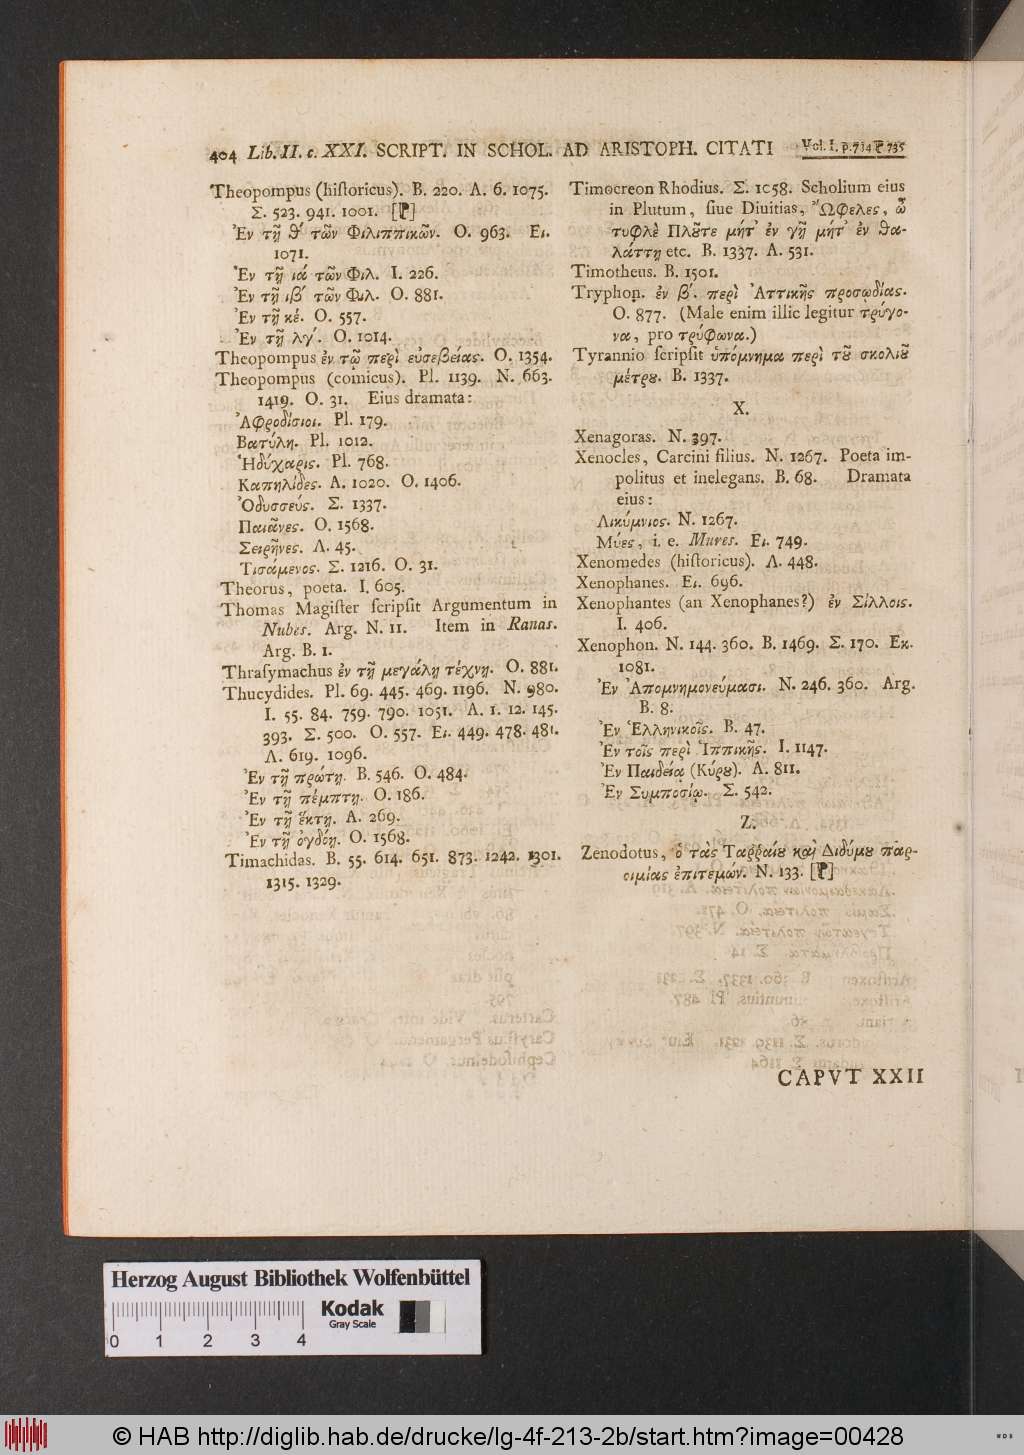 404 Lib. II. c. XXI. SCRIPT. IN SCHOL. AD ARISTOPH. CITATI Vol. I. p. 734 735
Theopompus (hiſtoricus). B. 220. A. 6. 1075.
Σ. 523. 941. 1001.
Ἐν τῇ θ´ τῶν Φιλιππικῶν. O. 963. Ει.
1071.
Ἐν τῇ ιά τῶν Φιλ. I. 226.
Ἐν τῇ ιβ´ τῶν Φιλ. O. 881.
Ἐν τῇ κέ. O. 557.
Ἐν τῇ λγ´. O. 1014.
Theopompus ἐν τῷ περὶ εὐσεβείας. O. 1354.
Theopompus (comicus). Pl. 1139. N. 663.
1419. O. 31. Eius dramata:
Ἀφροδίσιοι. Pl. 179.
Βατύλη. Pl. 1012.
Ἡδύχαρις. Pl. 768.
Καπηλίδες. A. 1020. O. 1406.
Ὀδυσσεύς. Σ. 1337.
Παιᾶνες. O. 1568.
Σειρῆνες. Λ. 45.
Τισάμενος. Σ. 1216. O. 31.
Theorus, poeta. I. 605.
Thomas Magiſter ſcripſit Argumentum in
Nubes. Arg. N. 11. Item in Ranas.
Arg. B. 1.
Thraſymachus ἐν τῇ μεγάλῃ τέχνῃ. O. 881.
Thucydides. Pl. 69. 445. 469. 1196. N. 980.
I. 55. 84. 759. 790. 1051. A. 1. 12. 145.
393. Σ. 500. O. 557. Ει. 449. 478. 481.
Λ. 619. 1096.
Ἐν τῇ πρώτῃ. B. 546. O. 484.
Ἐν τῇ πέμπτῃ. O. 186.
Ἐν τῇ ἕκτῃ. A. 269.
Ἐν τῇ ὀγδόῃ. O. 1568.
Timachidas. B. 55. 614. 651. 873. 1242. 1301.
1315. 1329.
Timocreon Rhodius. Σ. 1058. Scholium eius
in Plutum, ſiue Diuitias, Ὤφελες, ὦ
τυφλὲ Πλȣ͂τε μήτ᾽ ἐν γῇ μήτ᾽ ἐν θα-
λάττῃ etc. B. 1337. A. 531.
Timotheus. B. 1501.
Tryphon. ἐν β´. περὶ Ἀττικῆς προσῳδίας.
O. 877. (Male enim illic legitur τρύγο-
να, pro τρύφωνα.)
Tyrannio ſcripſit ὑπόμνημα περὶ τȣ͂ σκολιȣ͂
μέτρȣ. B. 1337.
X.
Xenagoras. N. 397.
Xenocles, Carcini filius. N. 1267. Poeta im-
politus et inelegans. B. 68. Dramata
eius:
Λικύμνιος. N. 1267.
Μύες, i. e. Mures. Ει. 749.
Xenomedes (hiſtoricus). Λ. 448.
Xenophanes. Ει. 696.
Xenophantes (an Xenophanes?) ἐν Σίλλοις.
I. 406.
Xenophon. N. 144. 360. B. 1469. Σ. 170. Εκ.
1081.
Ἐν Ἀπομνημονεύμασι. N. 246. 360. Arg.
B. 8.
Ἐν Ἑλληνικοῖς. B. 47.
Ἐν τοῖς περὶ Ἱππικῆς. I. 1147.
Ἐν Παιδείᾳ (Κύρȣ). A. 811.
Ἐν Συμποσίῳ. Σ. 542.
Z.
Zenodotus, ὁ τὰς Ταῤῥαίȣ καὶ Διδύμȣ παρ-
οιμίας ἐπιτεμών. N. 133.
CAPVT XXII
Herzog August Bibliothek Wolfenbüttel
0 1 2 3 4 Kodak
Gray Scale
© HAB http://diglib.hab.de/drucke/lg-4f-213-2b/start.htm?image=00428